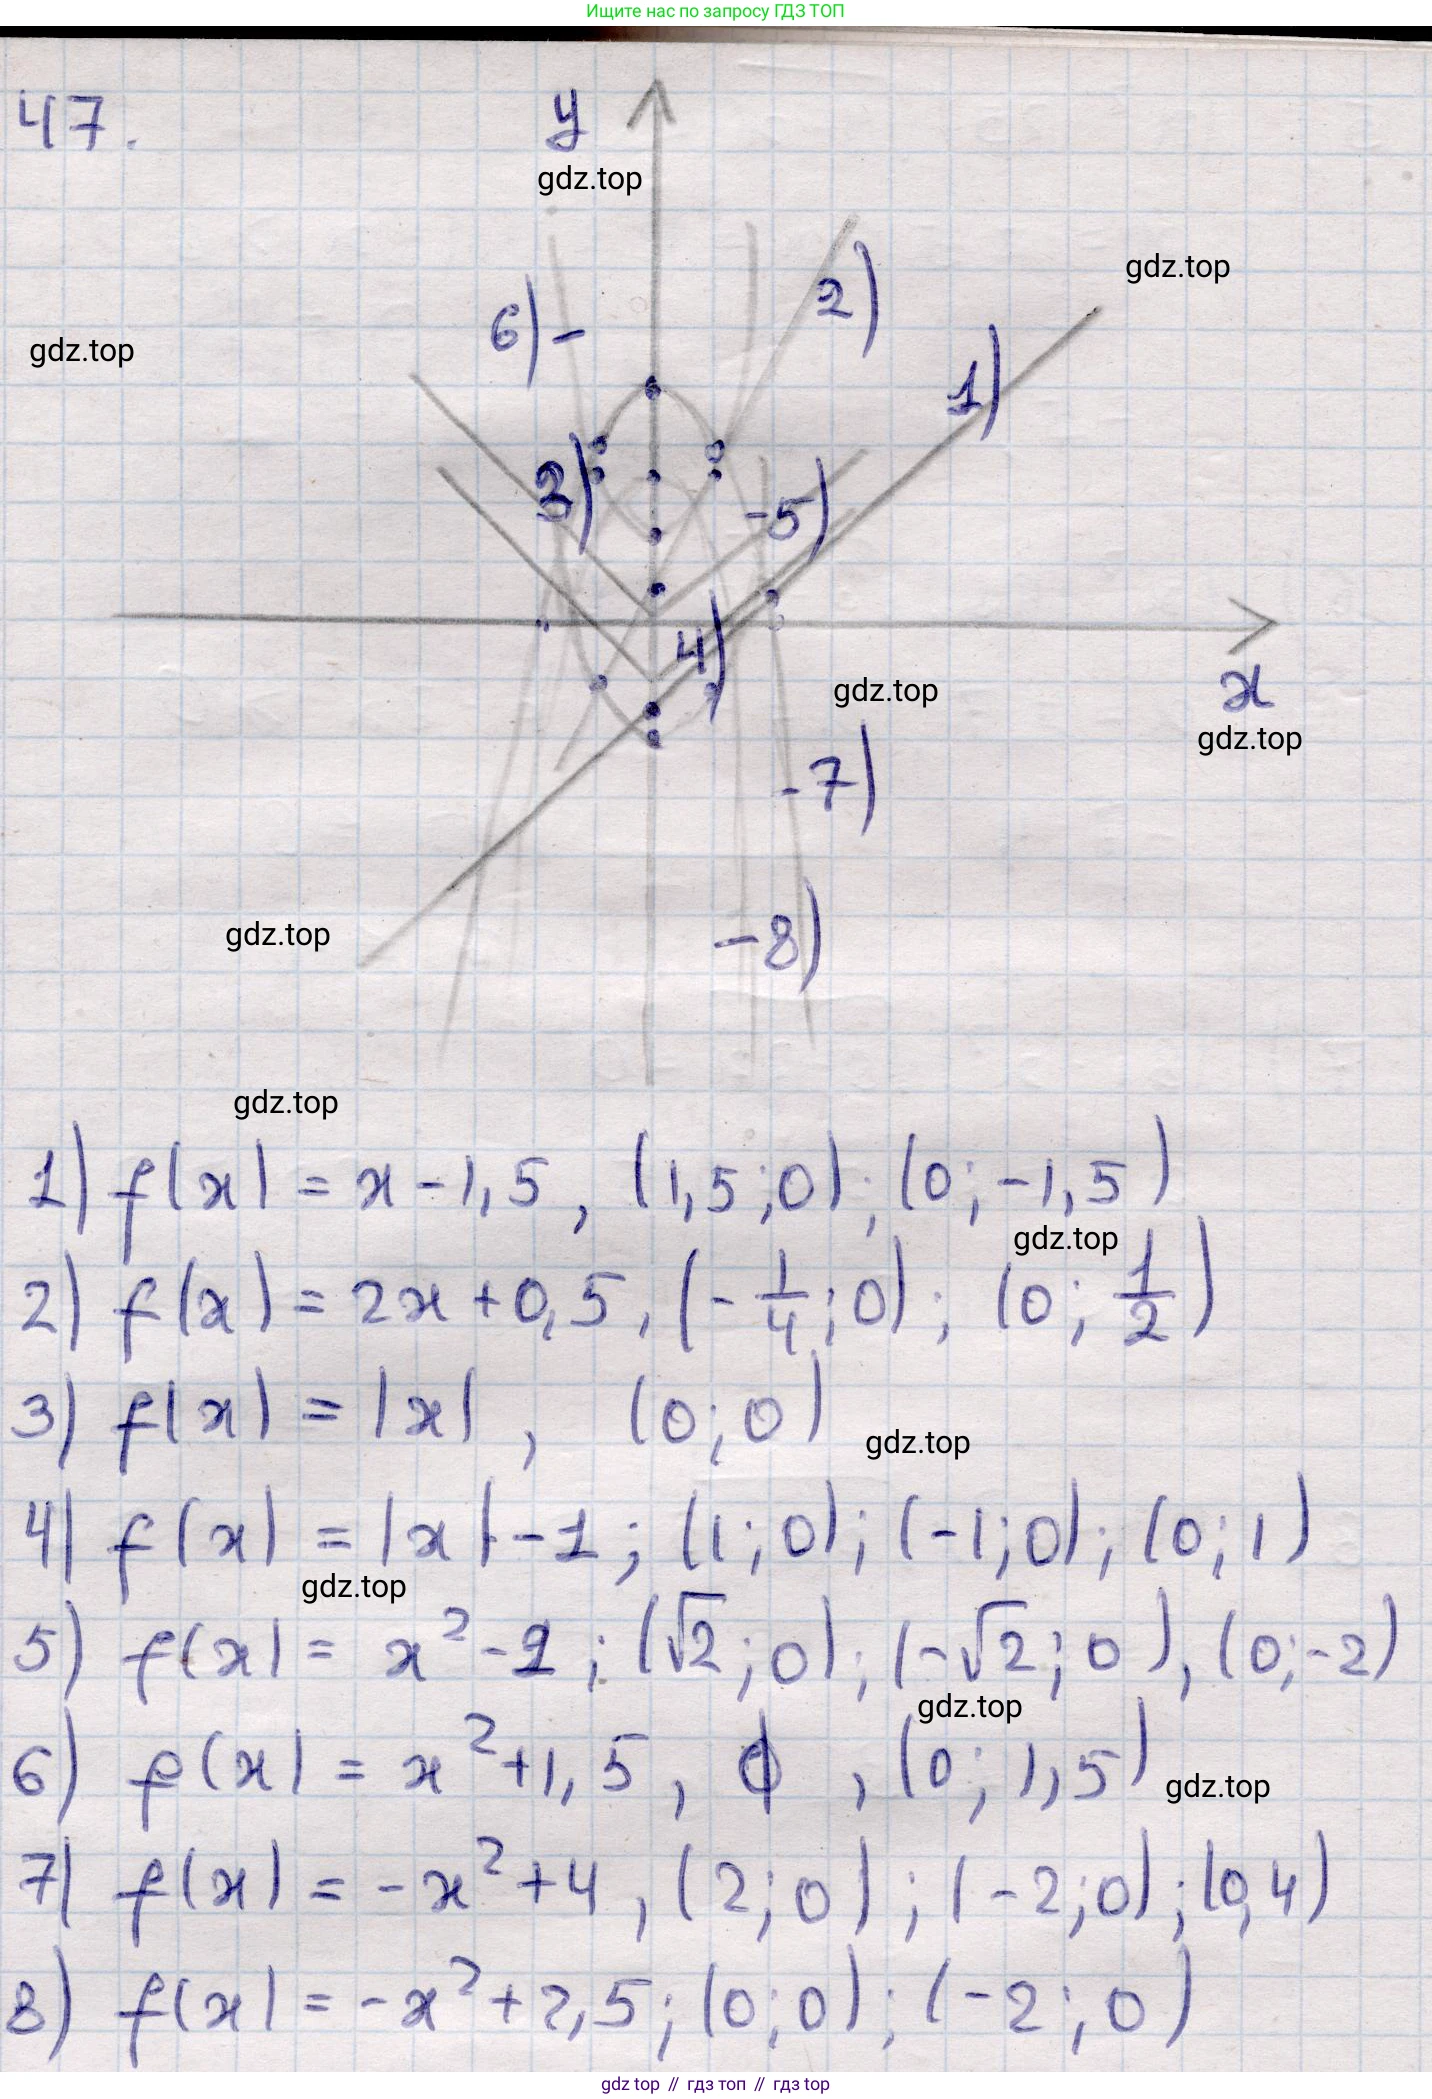 Ищите нас по запросу ГДЗ ТОП
47.
y
gdz.top
gdz.top
2)
6)-
gdz.top
1)
3)
-5)
4)
gdz.top
x
gdz.top
-7)
gdz.top
-8)
gdz.top
1) f(x) = x - 1,5, (1,5;0); (0; -1,5)
gdz.top
2) f(x) = 2x + 0,5, (- 1/4; 0); (0; 1/2)
3) f(x) = |x|, (0; 0)
gdz.top
4) f(x) = |x| - 1; (1; 0); (-1; 0); (0; 1)
gdz.top
5) f(x) = x² - 2; (√2; 0); (-√2; 0), (0; -2)
gdz.top
6) f(x) = x² + 1,5, ϕ, (0; 1,5)
gdz.top
7) f(x) = -x² + 4, (2; 0); (-2; 0); (0, 4)
8) f(x) = -x² + 2,5; (0; 0); (-2; 0)
gdz top // гдз топ // гдз top